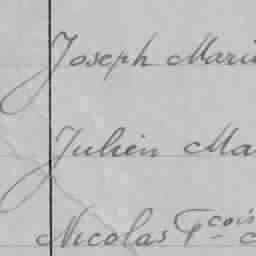 Joseph Marie
Julien Ma
Nicolas Fçois